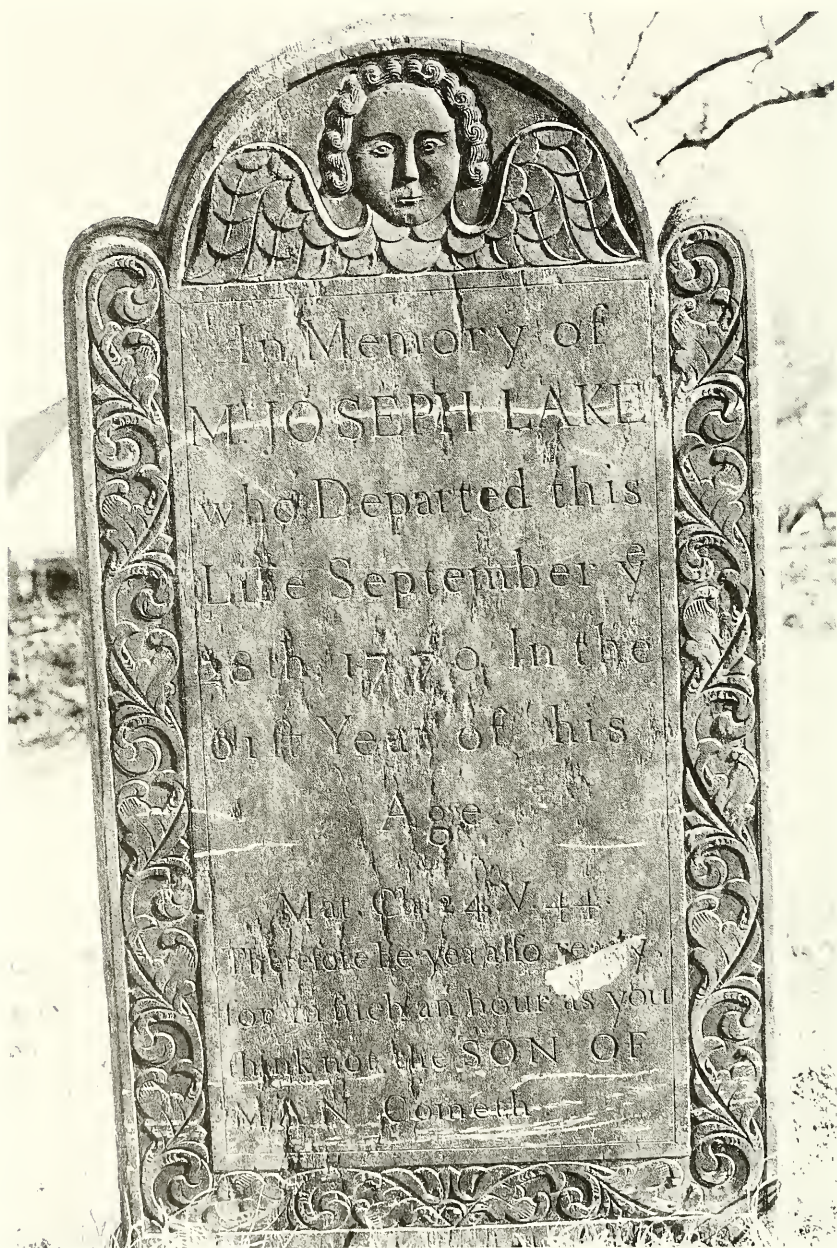 In Memory of
Mr JOSEPH LAKE
who Departed this
Life September ye
28th 1770 In the
61ſt Year of his
Age
Mat. Ch 24 V 44
Therefore be yea alſo ready,
for in ſuch an hour as you
think not the SON OF
MAN Cometh